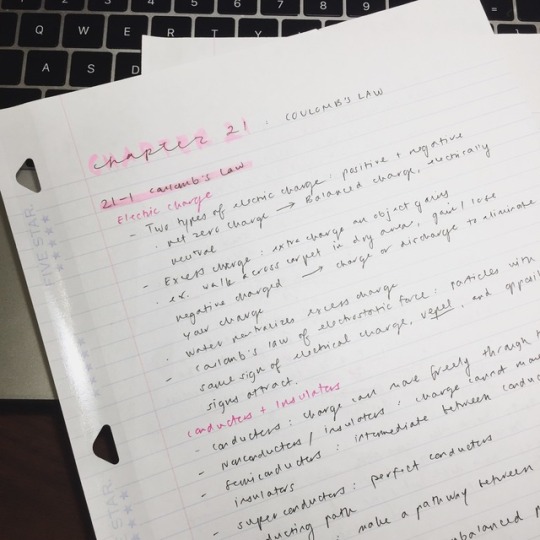 7 8 9
Q W E R T Y
A S D
CHAPTER 21
chapter 21 : COULOMB'S LAW
21-1 coulomb's Law
Electric charge
- Two types of electric charge: positive + negative
· net zero charge → Balanced charge, electrically
neutral
- Excess charge: extra charge an object gains
· ex. walk across carpet in dry area, gain / lose
negative charged → charge or discharge to eliminate
your charge
· water neutralizes excess charge
- coulomb's law of electrostatic force: particles with
same sign of electrical charge, repel, and opposi
signs attract.
conductors + insulators
- conductors: charge can move freely through
- nonconductors / insulators: charge cannot mov
- semiconductors: intermediate between conduc
insulators
- superconductors: perfect conductors
ducting path
: make a pathway between
nbalanced
FIVE STAR
FIVE STAR